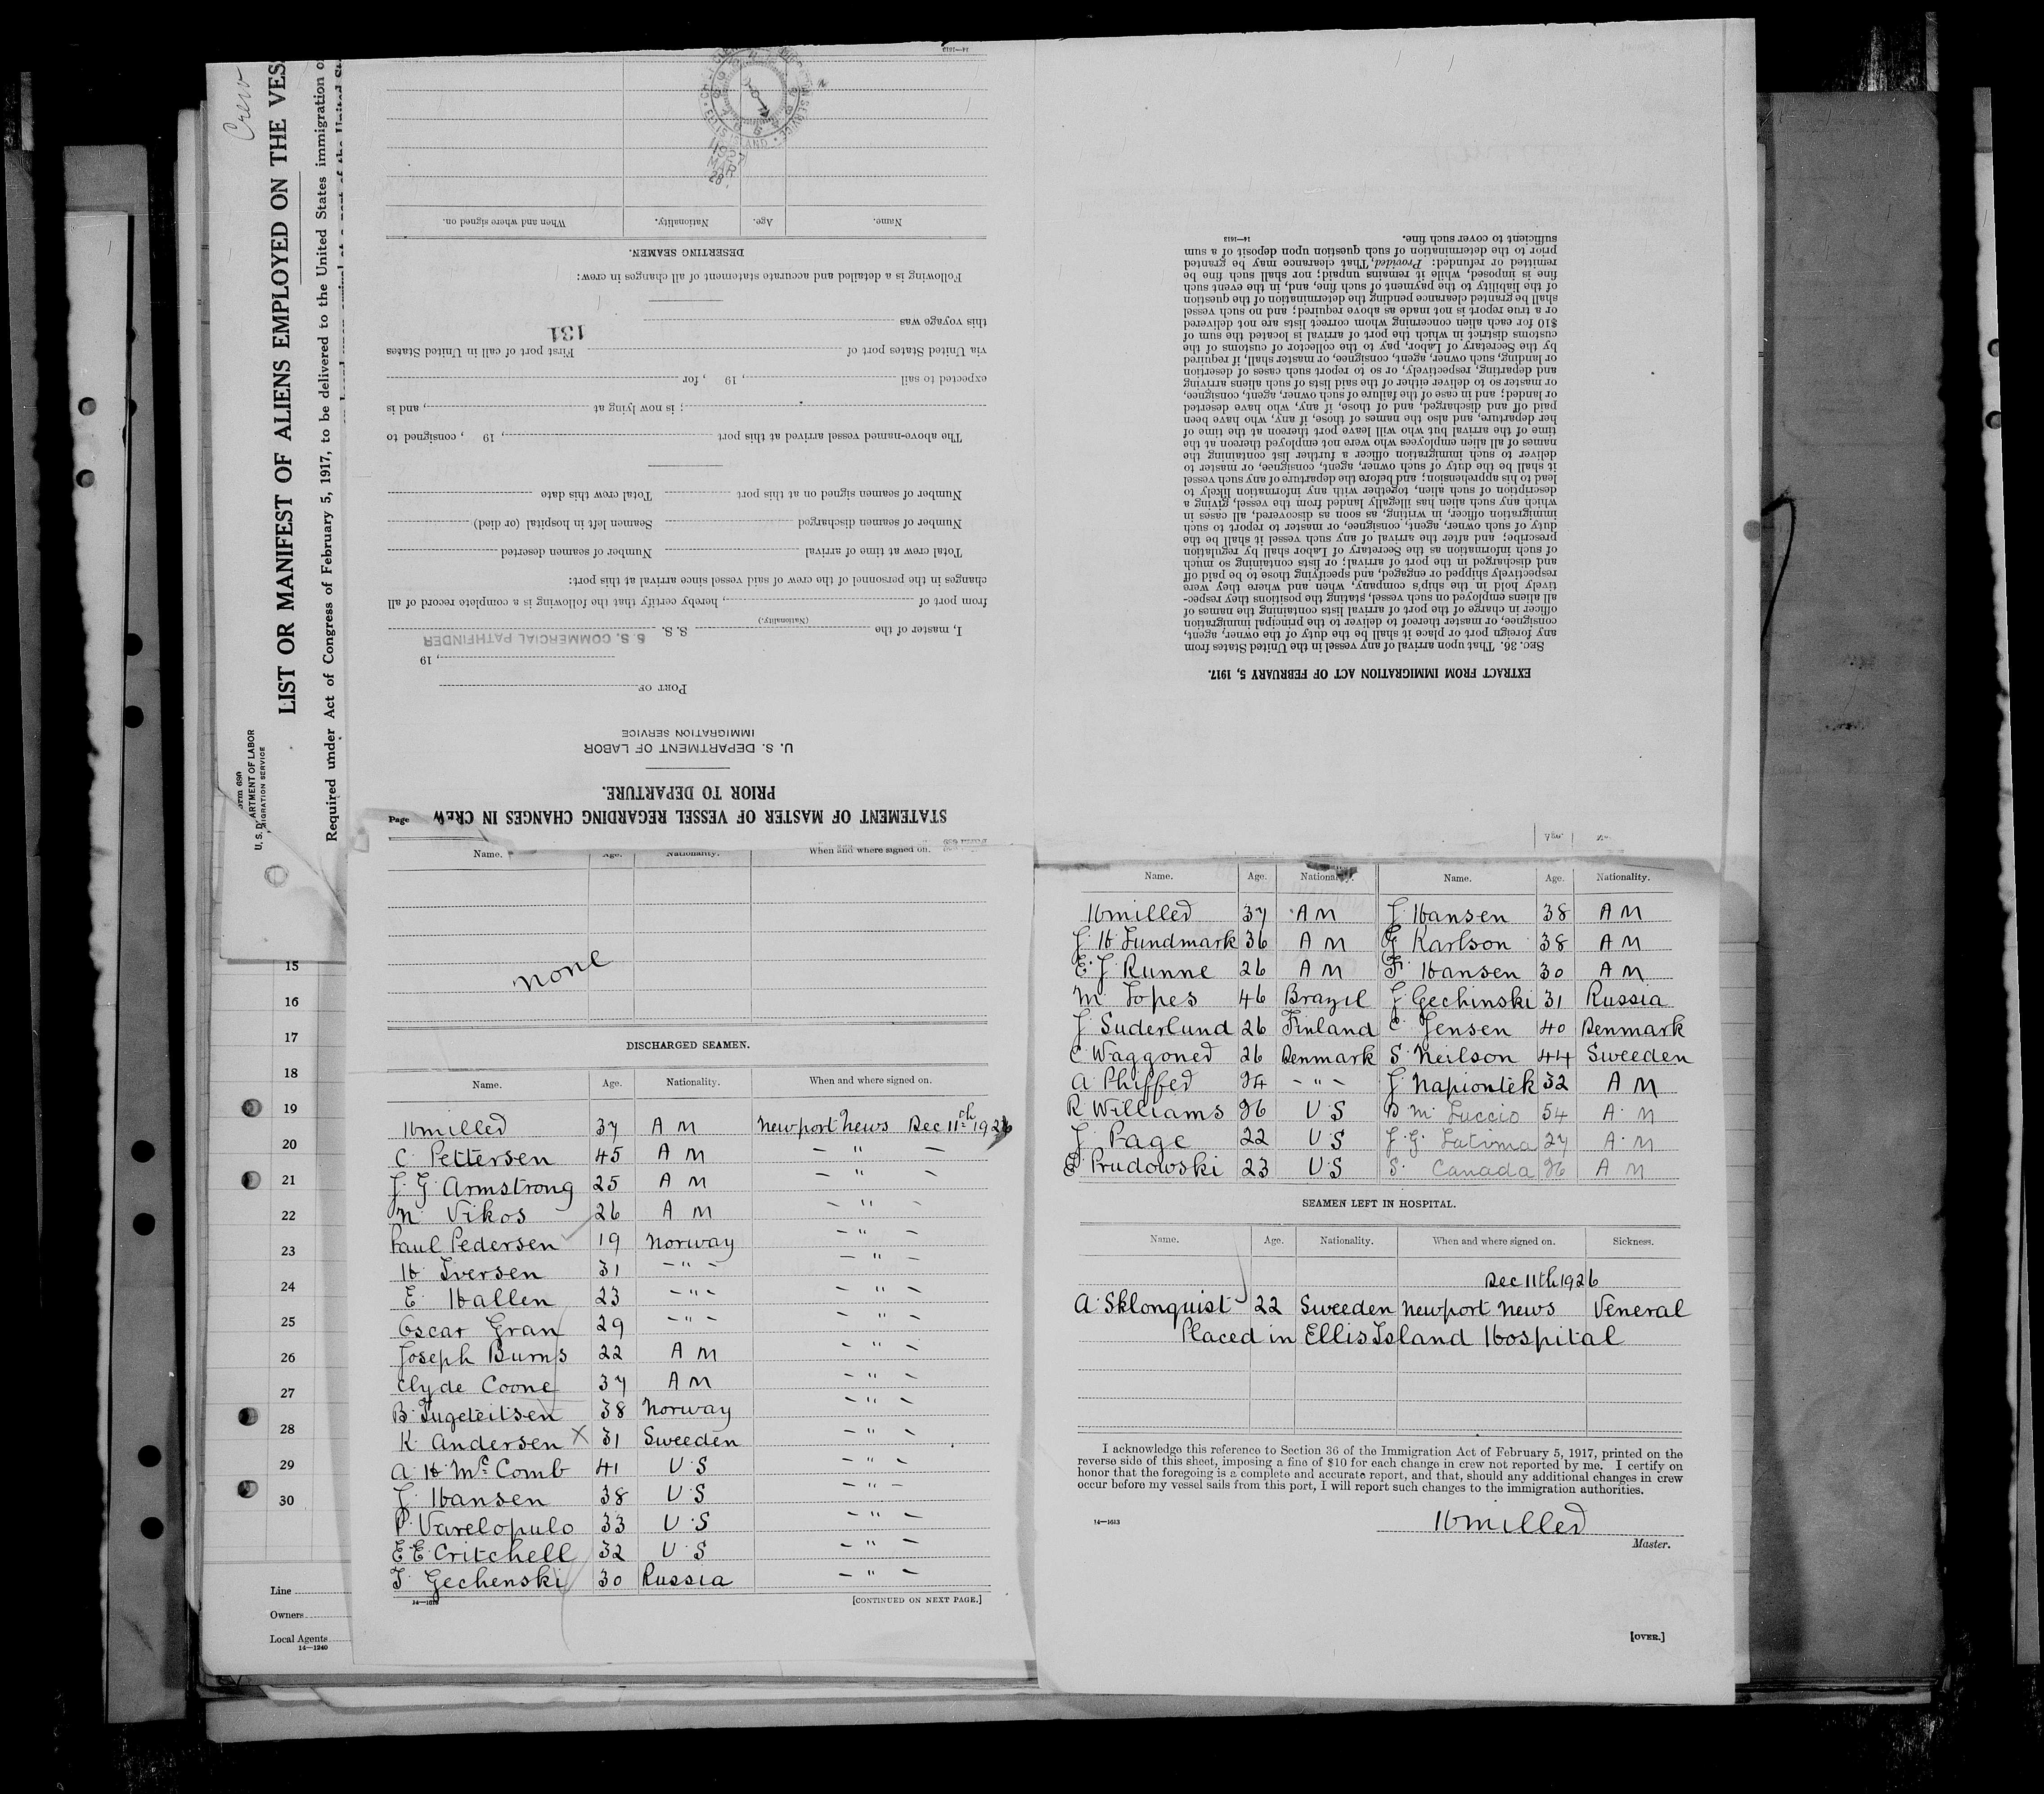 Crew
LIST OR MANIFEST OF ALIENS EMPLOYED ON THE VES
Required under Act of Congress of February 5, 1917, to be delivered to the United States immigration
U. S. DEPARTMENT OF LABOR
IMMIGRATION SERVICE
15
16
17
18
19
20
21
22
23
24
25
26
27
28
29
30
Line
Owners
Local Agents
14—1240
Page
STATEMENT OF MASTER OF VESSEL REGARDING CHANGES IN CREW
PRIOR TO DEPARTURE.
U. S. DEPARTMENT OF LABOR
IMMIGRATION SERVICE
PORT OF
, 19
I, master of the (Nationality.) S. S. S. S. COMMERCIAL PATHFINDER
from port of , hereby certify that the following is a complete record of all
changes in the personnel of the crew of said vessel since arrival at this port:
Total crew at time of arrival Number of seamen deserted
Number of seamen discharged Seamen left in hospital (or died)
Number of seamen signed on at this port Total crew this date
The above-named vessel arrived at this port , 19 , consigned to
; is now lying at , and is
expected to sail , 19 , for
via United States port of First port of call in United States
131
this voyage was
Following is a detailed and accurate statement of all changes in crew:
DESERTING SEAMEN.
Name. Age. Nationality. When and where signed on.
14—1613
Name. Age. Nationality. When and where signed on.
none
DISCHARGED SEAMEN.
Name. Age. Nationality. When and where signed on.
H Miller 37 A M Newport News Dec 11th 1926
C. Pettersen 45 A M — " —
J. G. Armstrong 25 A M — " —
N. Vikos 26 A M — " —
Paul Pedersen 19 Norway — " —
H Iversen 31 — " — — " —
E. Hallen 23 — " — — " —
Oscar Gran 29 — " — — " —
Joseph Burns 22 A M — " —
Clyde Coone 37 A M — " —
B. Tugeteitsen 38 Norway — " —
K. Andersen X 31 Sweeden — " —
A. H. McComb 41 U.S — " —
J. Hansen 38 U.S — " —
P. Varelopulo 33 U.S — " —
E. E. Critchell 32 U.S — " —
J. Gechenski 30 Russia — " —
14—1613 [CONTINUED ON NEXT PAGE.]
EXTRACT FROM IMMIGRATION ACT OF FEBRUARY 5, 1917.
SEC. 36. That upon arrival of any vessel in the United States from
any foreign port or place it shall be the duty of the owner, agent,
consignee, or master thereof to deliver to the principal immigration
officer in charge of the port of arrival lists containing the names of
all aliens employed on such vessel, stating the positions they respec-
tively hold in the ship's company, when and where they were
respectively shipped or engaged, and specifying those to be paid off
and discharged in the port of arrival; or lists containing so much
of such information as the Secretary of Labor shall by regulation
prescribe; and after the arrival of any such vessel it shall be the
duty of such owner, agent, consignee, or master to report to such
immigration officer, in writing, as soon as discovered, all cases in
which any such alien has illegally landed from the vessel, giving a
description of such alien, together with any information likely to
lead to his apprehension; and before the departure of any such vessel
it shall be the duty of such owner, agent, consignee, or master to
deliver to such immigration officer a further list containing the
names of all alien employees who were not employed thereon at the
time of the arrival but who will leave port thereon at the time of
her departure, and also the names of those, if any, who have been
paid off and discharged, and of those, if any, who have deserted
or landed; and in case of the failure of such owner, agent, consignee,
or master so to deliver either of the said lists of such aliens arriving
and departing, respectively, or so to report such cases of desertion
or landing, such owner, agent, consignee, or master shall, if required
by the Secretary of Labor, pay to the collector of customs of the
customs district in which the port of arrival is located the sum of
$10 for each alien concerning whom correct lists are not delivered
or a true report is not made as above required; and no such vessel
shall be granted clearance pending the determination of the question
of the liability to the payment of such fine, and, in the event such
fine is imposed, while it remains unpaid; nor shall such fine be
remitted or refunded: Provided, That clearance may be granted
prior to the determination of such question upon deposit of a sum
sufficient to cover such fine. 14—1613
Name. Age. Nationality. Name. Age. Nationality.
H Miller 37 A M J. Hansen 38 A M
J. H Lundmark 36 A M G Karlson 38 A M
E. J. Runne 26 A M F. Hansen 30 A M
M Lopes 46 Brazil J Gechinski 31 Russia
J. Suderlund 26 Finland C Jensen 40 Denmark
C Waggoner 26 Denmark S. Neilson 44 Sweeden
A Phiffer 24 — " — J. Napiontek 32 A M
R Williams 26 U.S D. M. Luccio 54 A. M
J. Page 22 U.S J. G. Latima 27 A. M
E Prudowski 23 U.S S. Canada 26 A M
SEAMEN LEFT IN HOSPITAL.
Name. Age. Nationality. When and where signed on. Sickness.
Dec 11th 1926
A. Sklonquist 22 Sweeden Newport News Veneral
Placed in Ellis Island Hospital
I acknowledge this reference to Section 36 of the Immigration Act of February 5, 1917, printed on the
reverse side of this sheet, imposing a fine of $10 for each change in crew not reported by me. I certify on
honor that the foregoing is a complete and accurate report, and that, should any additional changes in crew
occur before my vessel sails from this port, I will report such changes to the immigration authorities.
14—1613 H Miller
Master.
[OVER.]